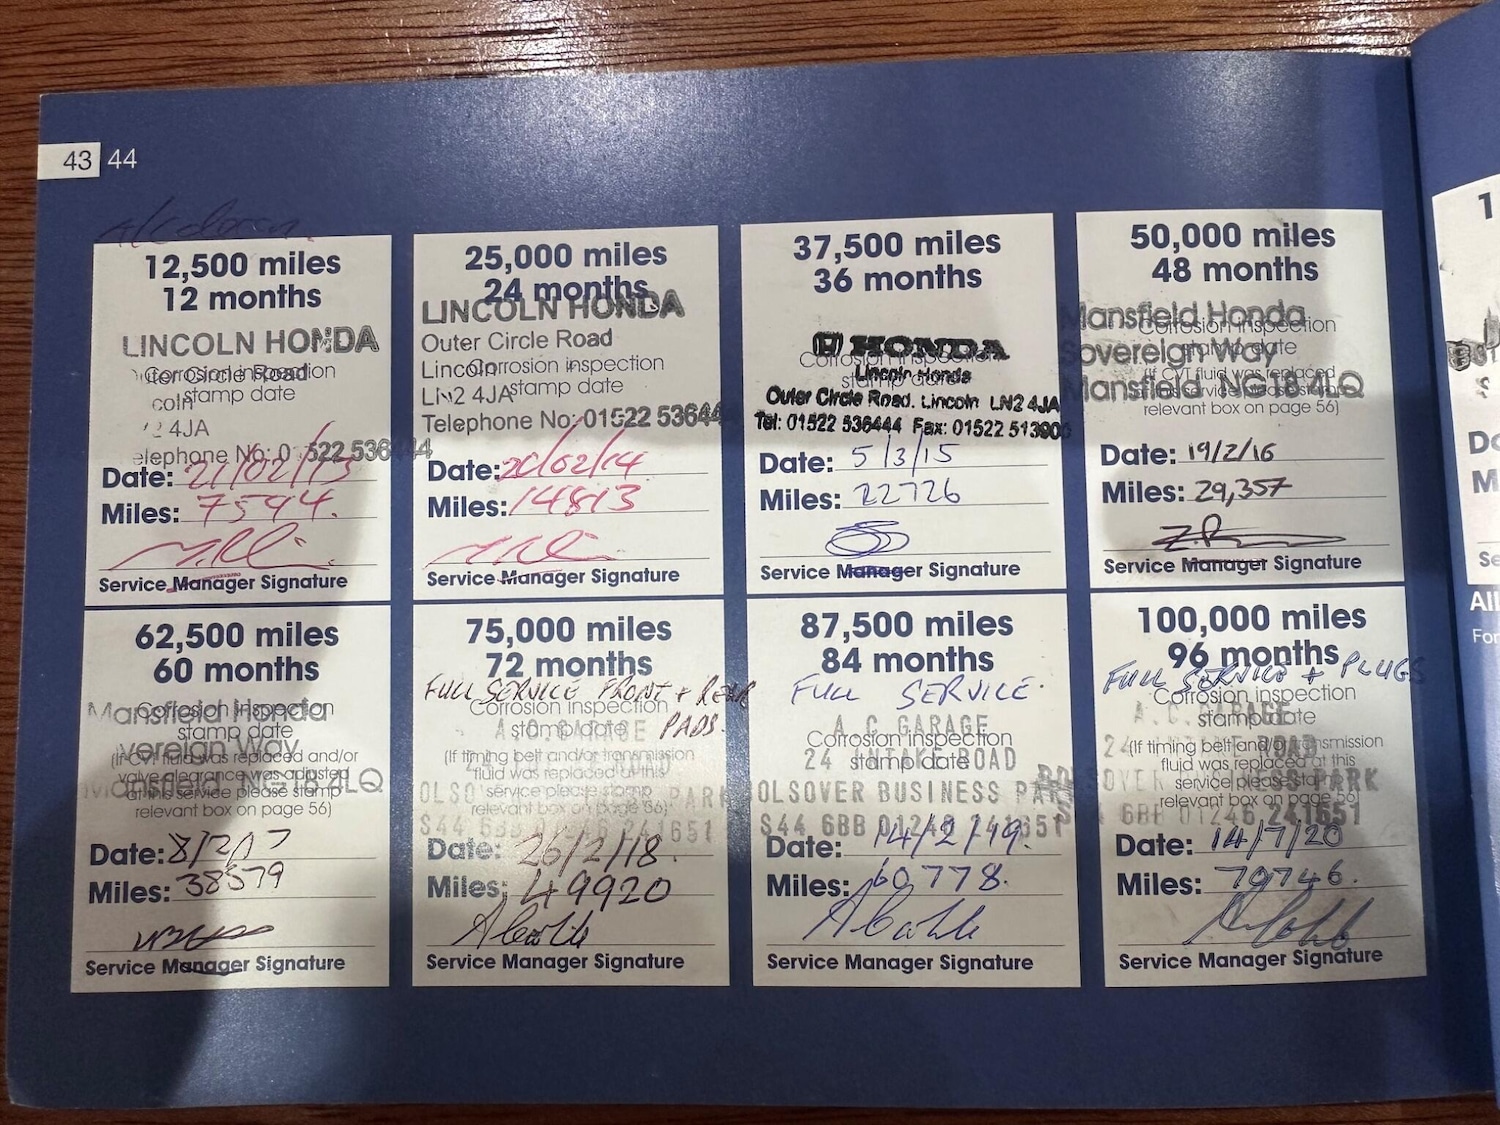 43 44
12,500 miles
12 months
LINCOLN HONDA
Outer Circle Road
Corrosion inspection
stamp date
coln
4JA
elephone No: 0 522 536444
Date: 21/02/13
Miles: 7594.
Service Manager Signature
25,000 miles
24 months
LINCOLN HONDA
Outer Circle Road
Lincoln
Corrosion inspection
stamp date
LN2 4JA
Telephone No: 01522 536444
Date: 20/02/14
Miles: 14813
Service Manager Signature
37,500 miles
36 months
HONDA
Corrosion inspection
stamp date
Lincoln Honda
Outer Circle Road. Lincoln LN2 4JA
Tel: 01522 536444 Fax: 01522 513900
Date: 5/3/15
Miles: 22726
Service Manager Signature
50,000 miles
48 months
Mansfield Honda
Corrosion inspection
Sovereign Way
stamp date
(If CVT fluid was replaced
Mansfield NG18 4LQ
at this service please stamp
relevant box on page 56)
Date: 19/2/16
Miles: 29,357
Service Manager Signature
62,500 miles
60 months
Mansfield Honda
Corrosion inspection
stamp date
vereign Way
(If CVT fluid was replaced and/or
valve clearance was adjusted
Mansfield NG18 4LQ
at this service please stamp
relevant box on page 56)
Date: 8/2/17
Miles: 38579
Service Manager Signature
75,000 miles
72 months
FULL SERVICE FRONT + REAR
PADS.
Corrosion inspection
stamp date
A.C. GARAGE
(If timing belt and/or transmission
fluid was replaced at this
service please stamp
relevant box on page 56)
S44 6BB 01246 241651
Date: 26/2/18.
Miles: 49920
Service Manager Signature
87,500 miles
84 months
FULL SERVICE.
A.C. GARAGE
Corrosion inspection
stamp date
24 INTAKE ROAD
BOLSOVER BUSINESS PARK
S44 6BB 01246 241651
Date: 14/2/19.
Miles: 60778.
Service Manager Signature
100,000 miles
96 months
FULL SERVICE + PLUGS
Corrosion inspection
stamp date
A.C. GARAGE
24 INTAKE ROAD
(If timing belt and/or transmission
fluid was replaced at this
service please stamp
relevant box on page 56)
BOLSOVER BUSINESS PARK
S44 6BB 01246 241651
Date: 14/7/20
Miles: 70746.
Service Manager Signature